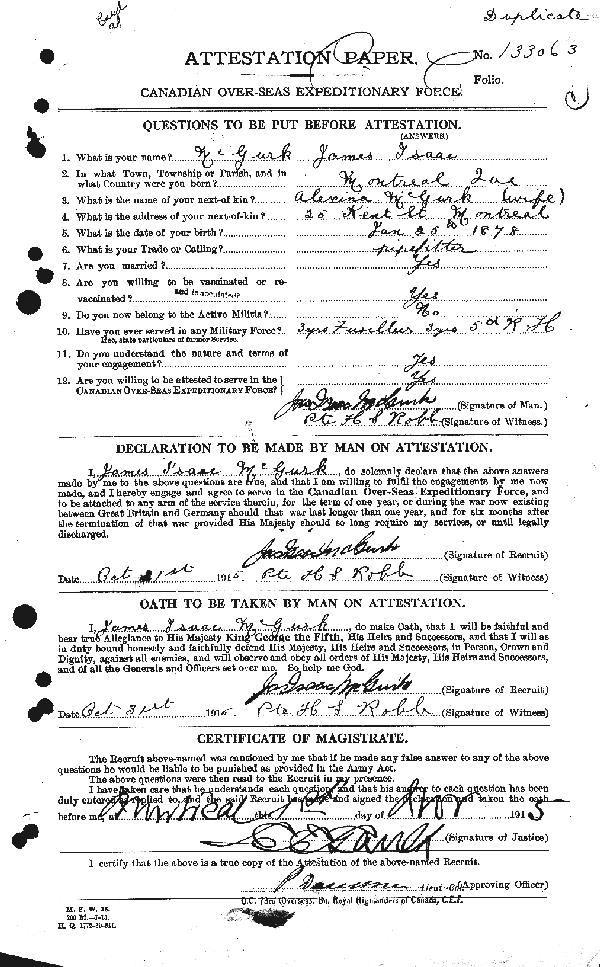 Duplicate
ATTESTATION PAPER. No. 133063
Folio.
CANADIAN OVER-SEAS EXPEDITIONARY FORCE.
QUESTIONS TO BE PUT BEFORE ATTESTATION.
(ANSWERS)
1. What is your name? McGurk James Isaac
2. In what Town, Township or Parish, and in
what Country were you born? Montreal Que
3. What is the name of your next-of-kin? Alexina McGurk (wife)
4. What is the address of your next-of-kin? 25 Kent St Montreal
5. What is the date of your birth? Jan 25th 1878
6. What is your Trade or Calling? pipefitter
7. Are you married? Yes
8. Are you willing to be vaccinated or re-
vaccinated? and inoculated Yes
9. Do you now belong to the Active Militia? No
10. Have you ever served in any Military Force? 3 yrs Fusilier 3 yrs 5th R H
If so, state particulars of former Service.
11. Do you understand the nature and terms of
your engagement? Yes
12. Are you willing to be attested to serve in the
CANADIAN OVER-SEAS EXPEDITIONARY FORCE? Yes
Jas Isaac McGurk (Signature of Man.)
Pte H S Robb (Signature of Witness.)
DECLARATION TO BE MADE BY MAN ON ATTESTATION.
I, James Isaac McGurk, do solemnly declare that the above answers
made by me to the above questions are true, and that I am willing to fulfil the engagements by me now
made, and I hereby engage and agree to serve in the Canadian Over-Seas Expeditionary Force, and
to be attached to any arm of the service therein, for the term of one year, or during the war now existing
between Great Britain and Germany should that war last longer than one year, and for six months after
the termination of that war provided His Majesty should so long require my services, or until legally
discharged.
Jas Isaac McGurk (Signature of Recruit)
Date Oct 31st 1915 Pte H S Robb (Signature of Witness)
OATH TO BE TAKEN BY MAN ON ATTESTATION.
I, James Isaac McGurk, do make Oath, that I will be faithful and
bear true Allegiance to His Majesty King George the Fifth, His Heirs and Successors, and that I will as
in duty bound honestly and faithfully defend His Majesty, His Heirs and Successors, in Person, Crown and
Dignity, against all enemies, and will observe and obey all orders of His Majesty, His Heirs and Successors,
and of all the Generals and Officers set over me. So help me God.
Jas Isaac McGurk (Signature of Recruit)
Date Oct 31st 1915 Pte H S Robb (Signature of Witness)
CERTIFICATE OF MAGISTRATE.
The Recruit above-named was cautioned by me that if he made any false answer to any of the above
questions he would be liable to be punished as provided in the Army Act.
The above questions were then read to the Recruit in my presence.
I have taken care that he understands each question, and that his answer to each question has been
duly entered as replied to, and the said Recruit has made and signed the declaration and taken the oath
before me, at Montreal this 1st day of Nov 1915
(Signature of Justice)
I certify that the above is a true copy of the Attestation of the above-named Recruit.
Lieut-Col. (Approving Officer)
O.C. 73rd Overseas Bn. Royal Highlanders of Canada, C.E.F.
M. F. W. 23.
H. Q. 1772-39-841.